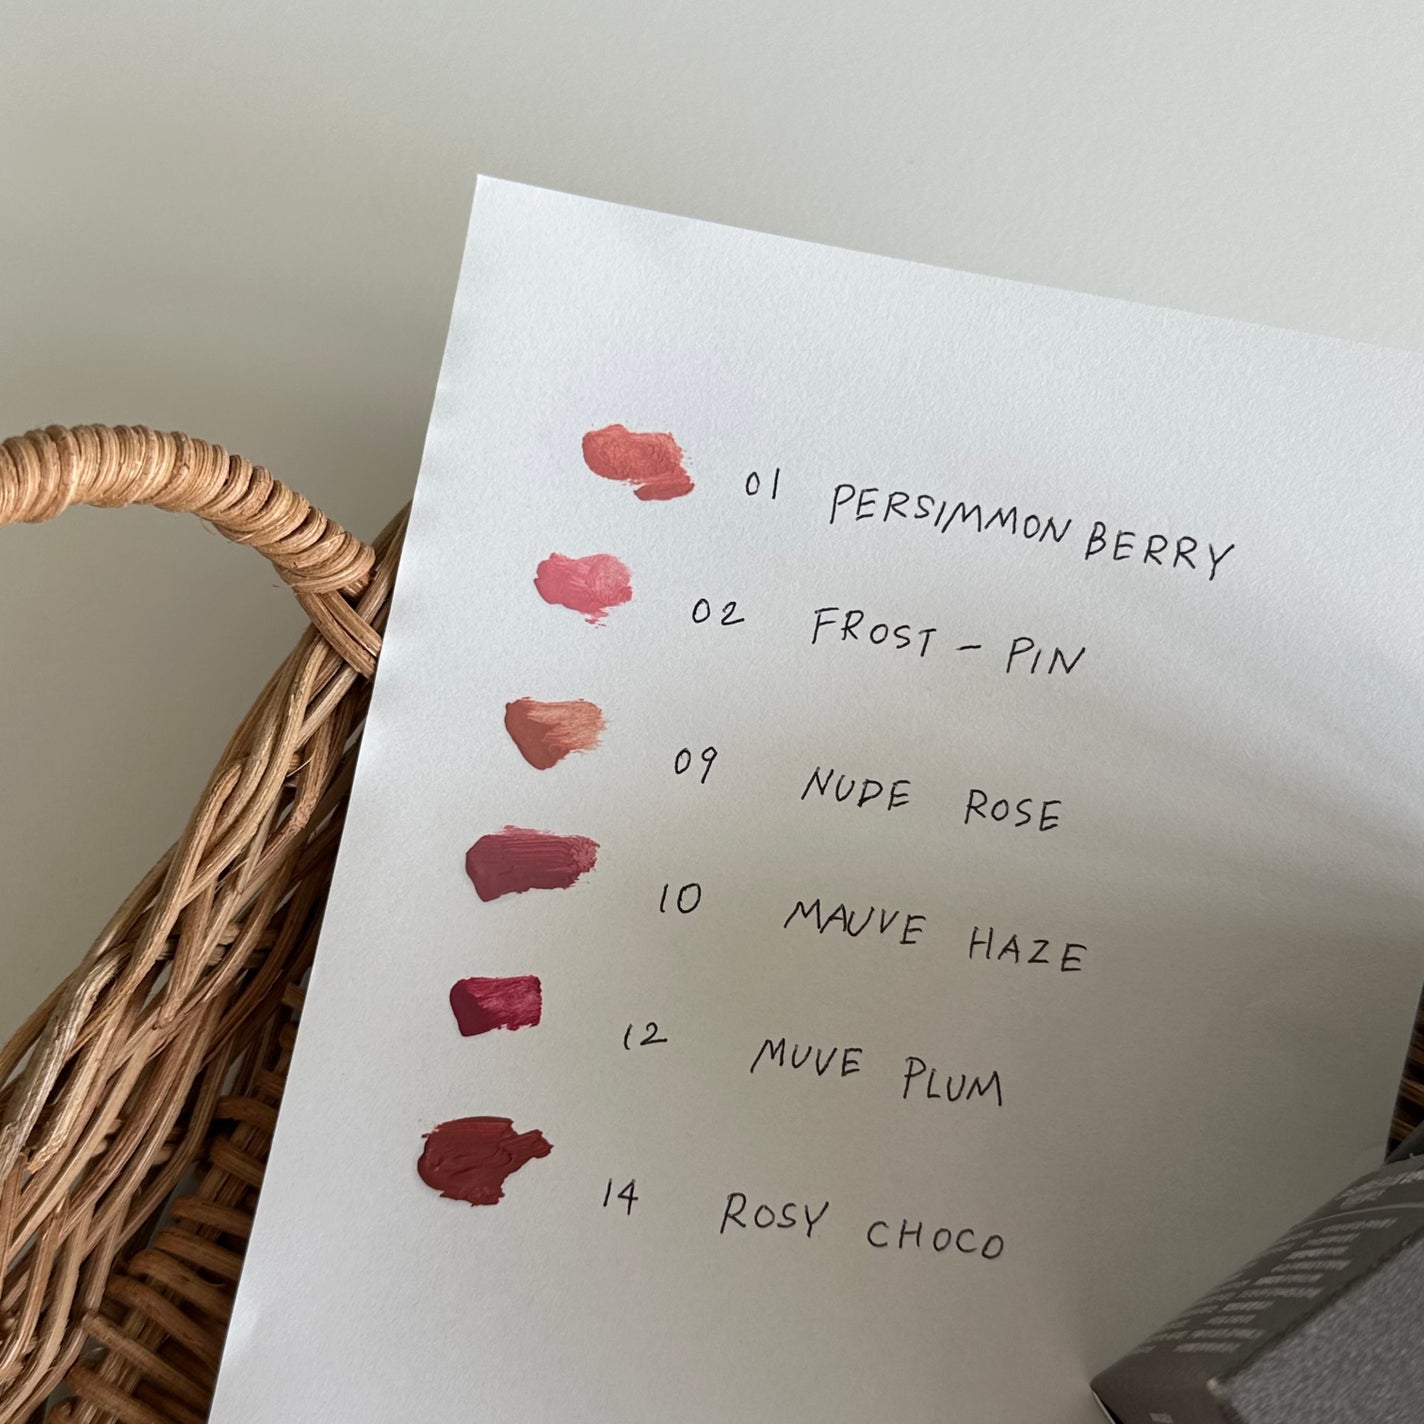 01 PERSIMMON BERRY
02 FROST - PIN
09 NUDE ROSE
10 MAUVE HAZE
12 MUVE PLUM
14 ROSY CHOCO